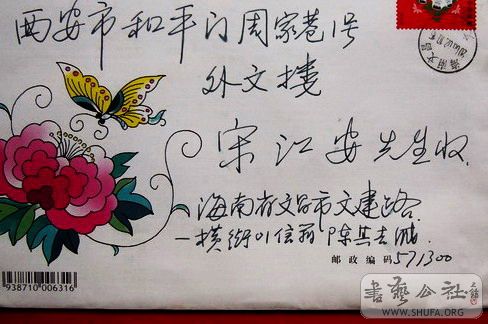 西安市和平门周家巷1号
外文楼
宋江安先生收
海南省文昌市文建路
一横街
邮政编码571300
938710006316
书艺公社
WWW.SHUFA.ORG